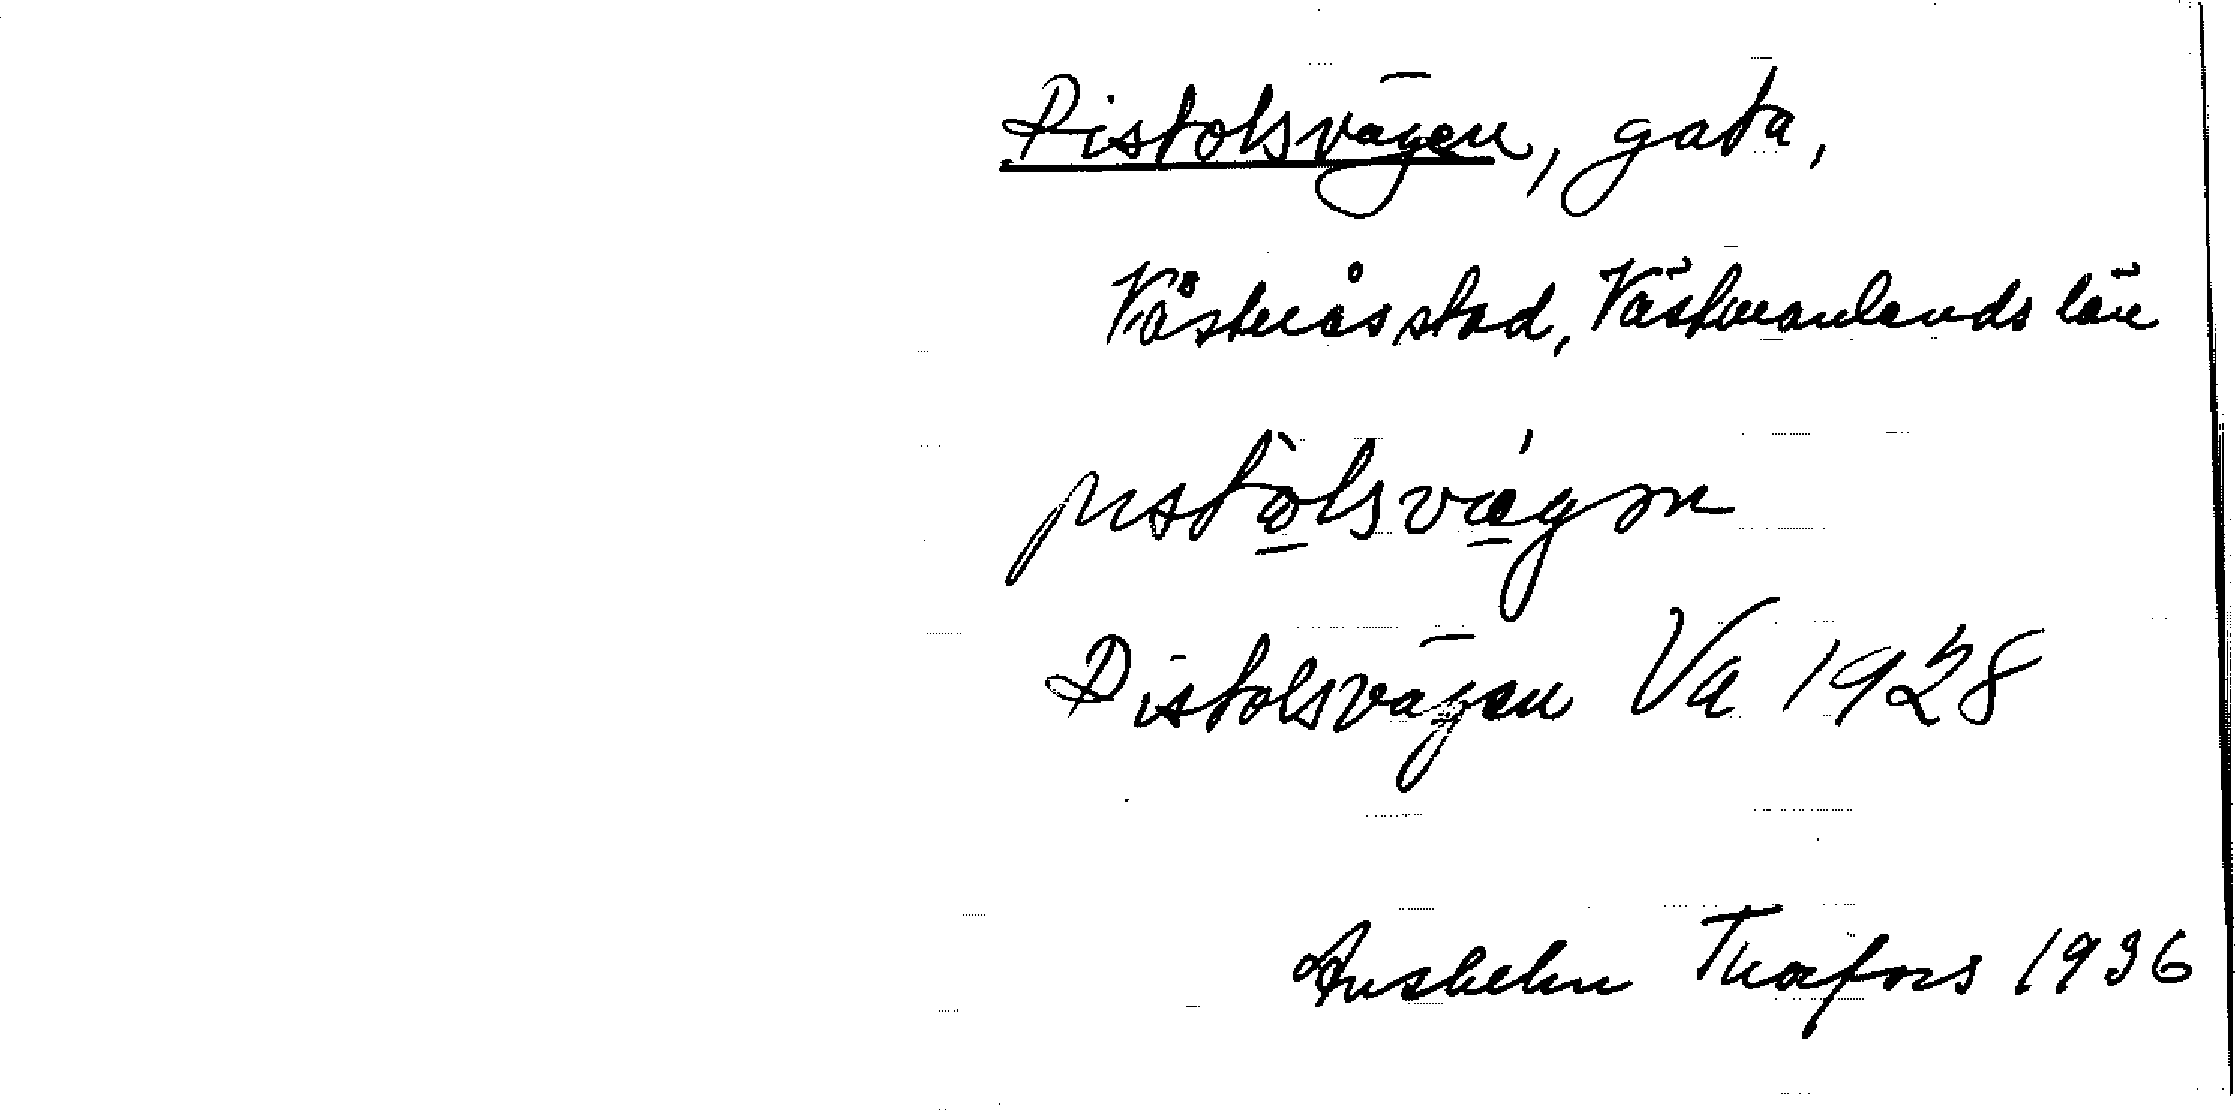 Pistolsvägen, gata,
Västerås stad, Västmanlands län
pistòlsvǽgən
Pistolsvägen Va 1928
Anshelm Thorfors 1936